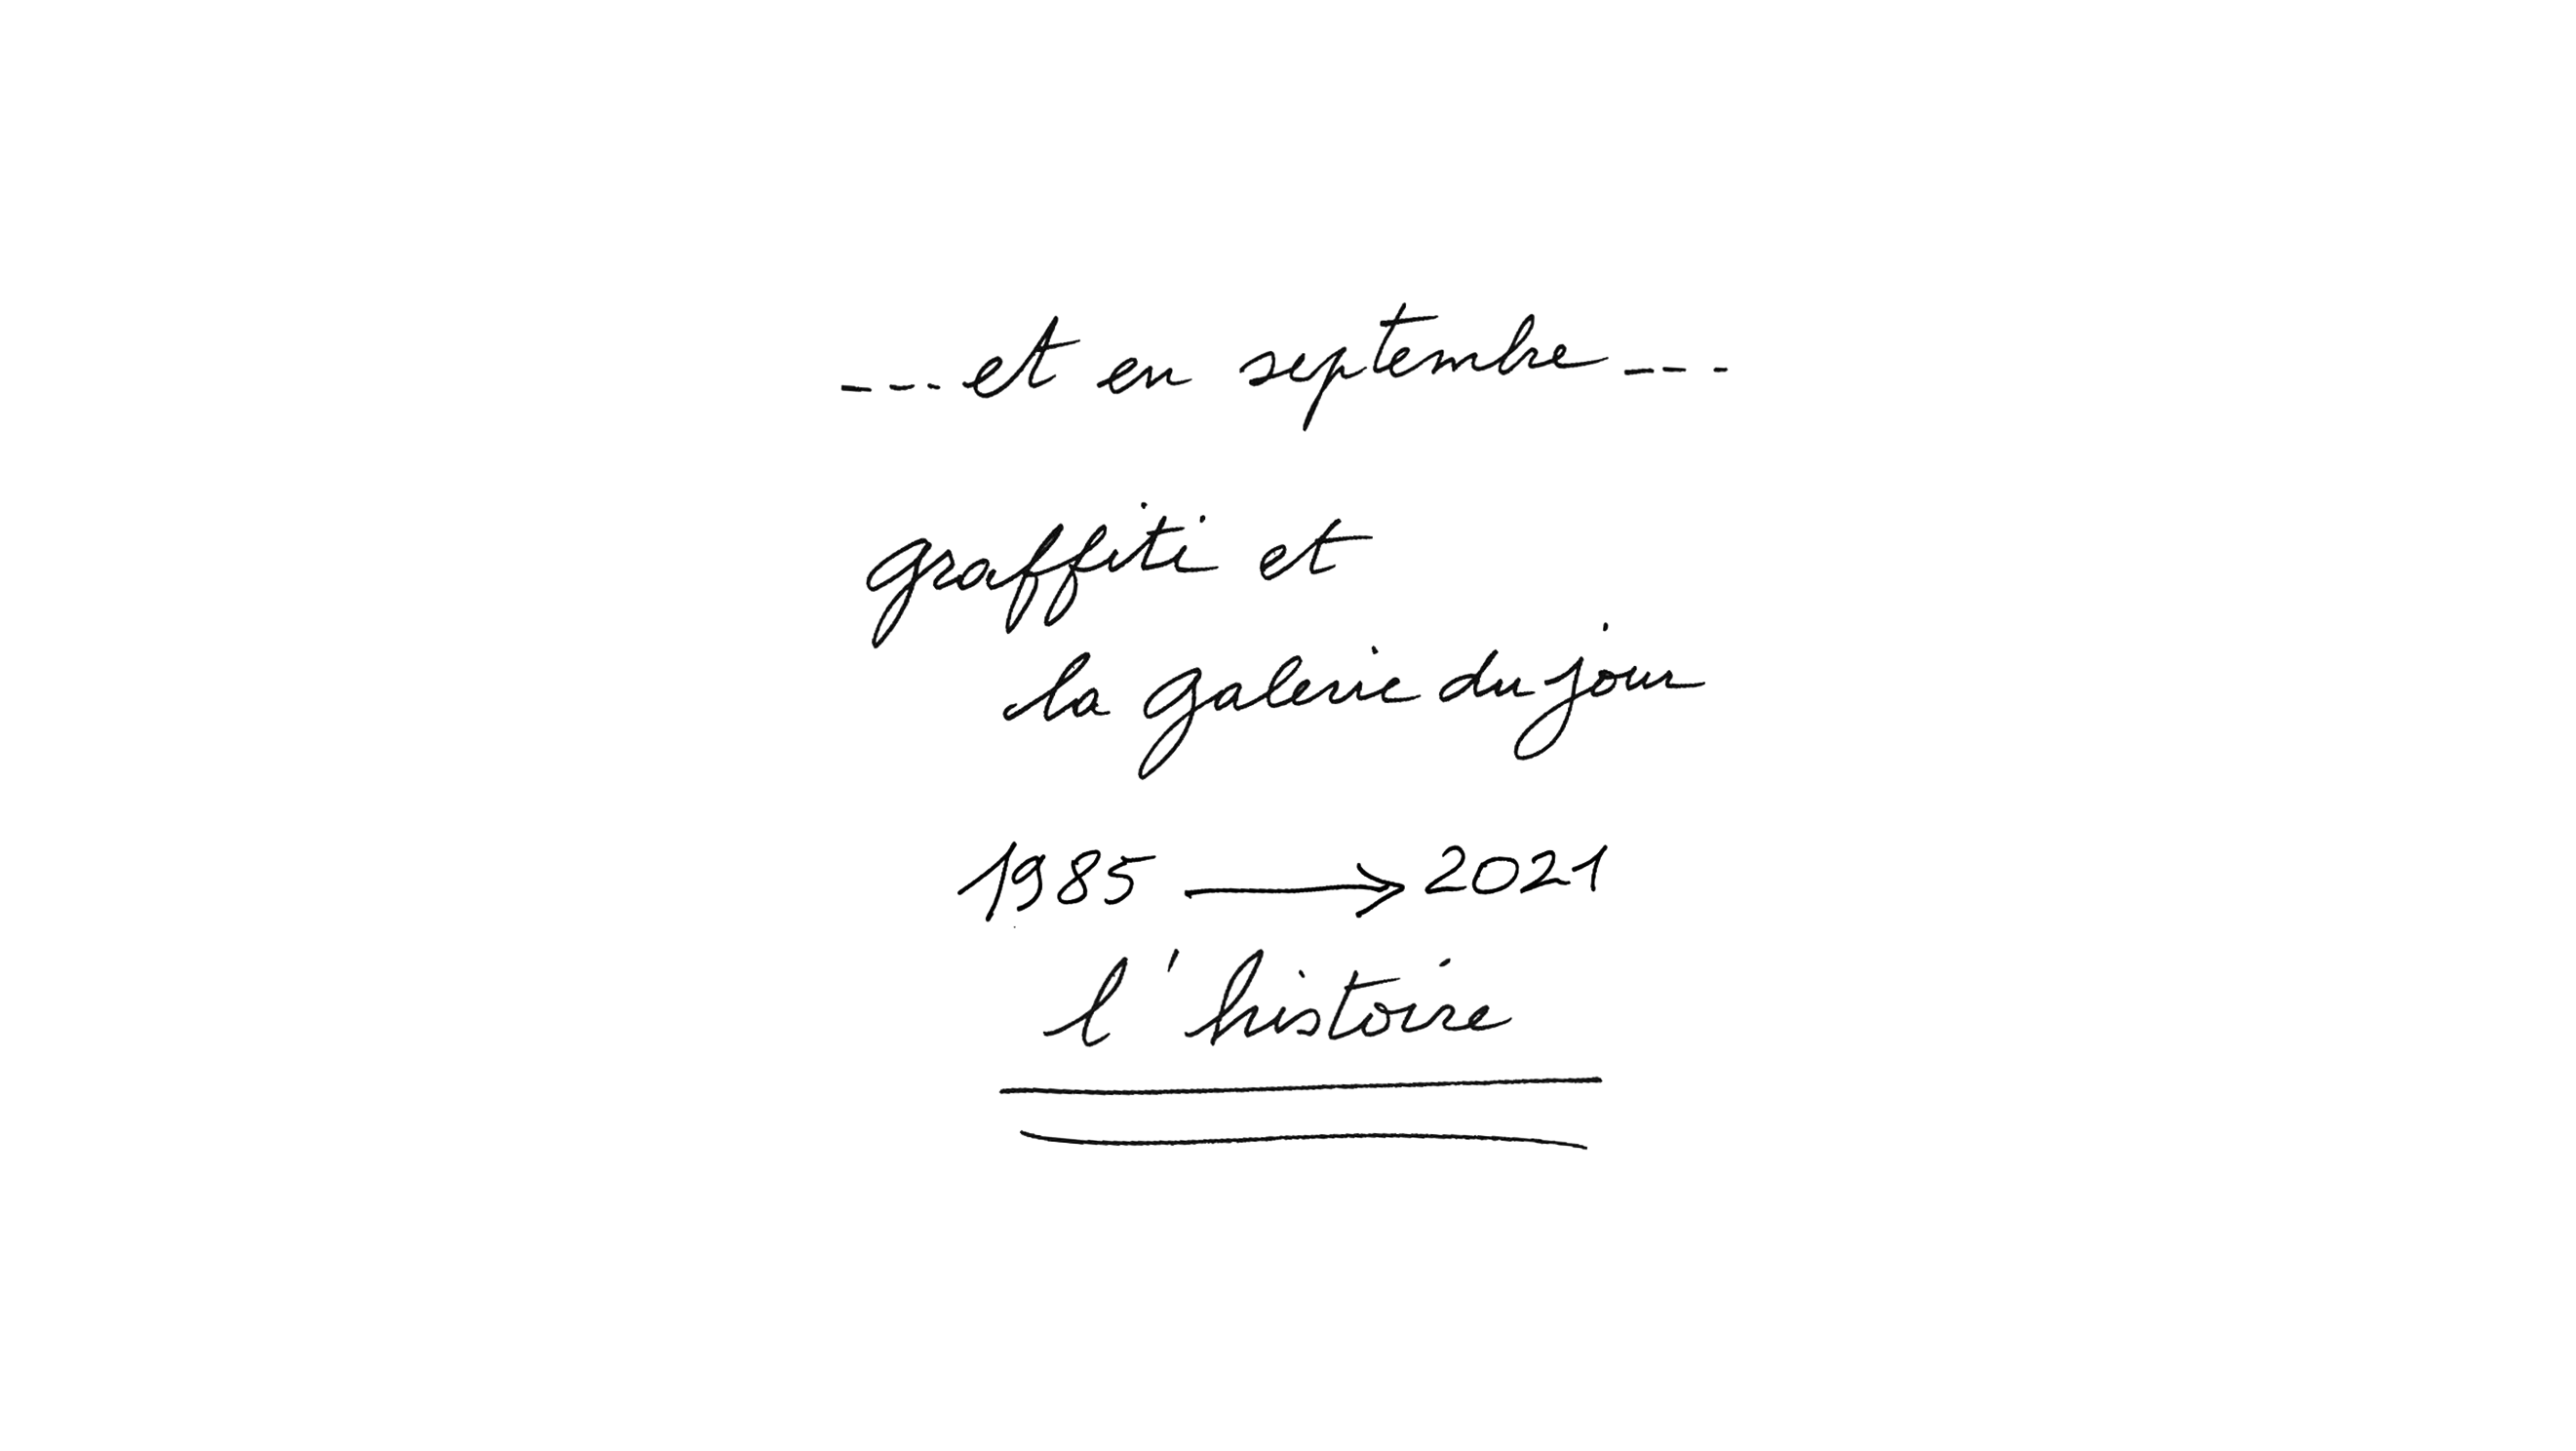 ---et en septembre---
graffiti et
la galerie du jour
1985 → 2021
l'histoire